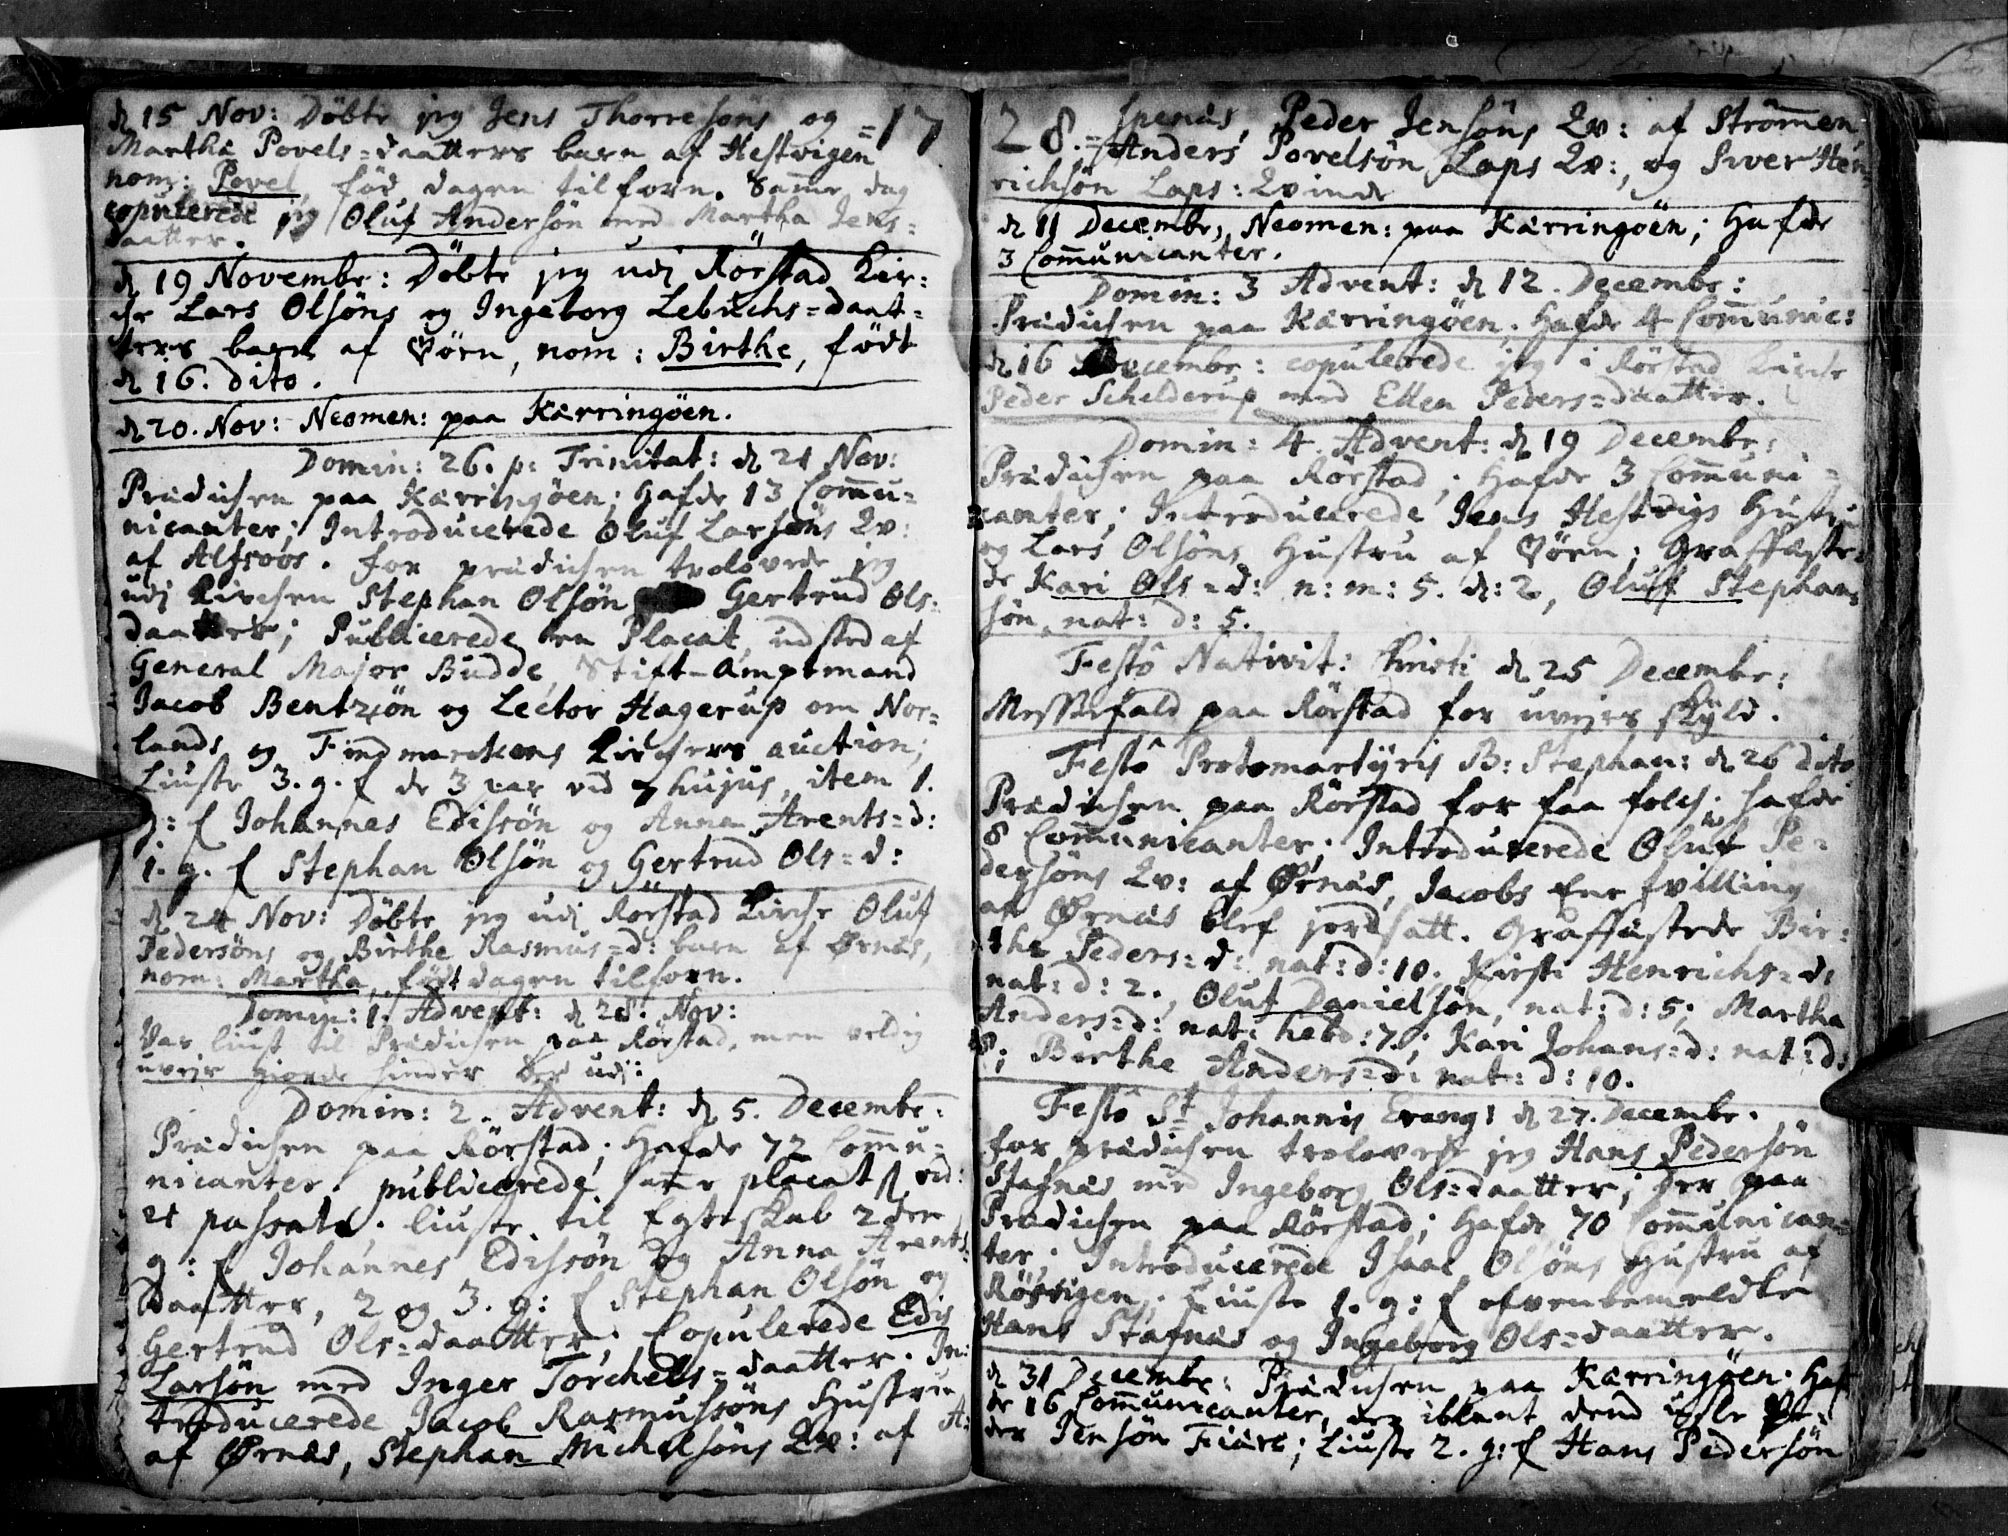 d 15 Nov: Döbte jeg Jens Thorresöns og =17
Martha Povels=daatters barn af Hestvigen
nom: Povel, fød dagen tilforn. Samme dag
copulerede jeg Oluf Andersön med Martha Jens=
daatter.
d 19 Novembr: Döbte jeg udj Rörstad Kir=
che Lars Olsöns og Ingeborg Lebuchs=daat=
ters barn af Örn, nom: Birthe, født
d 16. dito.
d 20. Nov: Neomen: paa Kærringöen.
Domin: 26. p: Trinitat: d 21 Nov:
Prædichen paa Kærringöen; Hafde 13 Commu=
nicanter; Introducerede Oluf Larsöns Qv:
af Alfroos. for prædichen trolovede jeg
udj Kirchen Stephan Olsön Gertrud Ols=
daatter; Publicerede en Placat, udsted af
General Major Budde, Stift-Amptmand
Jacob Bentzsön og Lector Hagerup om Nor=
lands og Findmarckens Kirchers auction;
Liuste 3. g. f de 3 par vid 7 hujus, item 1.
g: f Johannes Edissön og Anna Arents=d:
1. g. f Stephan Olsön og Gertrud Ols=d:
d 24 Nov: Döbte jeg udj Rörstad Kirche Oluf
Pedersöns og Birthe Rasmus=d: barn af Ørnæs,
nom: Martha, født dagen tilforn.
Domin: 1. Advent: d 28. Nov:
Var liust til Prædichen paa Rörstad, men veldig
uvejr giorde hinder der udj:
Domin: 2. Advent: d 5. Decembr:
Prædichen paa Rörstad; Hafde 72 Commu=
nicanter. publicerede samme placat vid:
21 passato. liuste til Egteskab 2den
g: f Johannes Edissön og Anna Arents=
Daatter, 2 og 3. g: f Stephan Olsön og
Gertrud Ols=daatter; Copulerede Edis
Larsön med Inger Torchels=daatter. In=
troducerede Jacob Rasmussöns Hustru
af Ørnæs, Stephan Michelsöns Qv: af A:
28.= spenæs, Peder Jensöns Qv: af Strømen
Anders Povelsön Laps Qv:, og Siver Hen=
richsön Laps: Qvinde
d 11 Decembr, Neomen: paa Kærringöen; Hafde
3 Communicanter.
Domin: 3 Advent: d 12. Decembr:
Prædichen paa Kærringöen. Hafde 4 Communic:
d 16 Decembr: copulerede jeg i Rörstad Kirche
Peder Schelderup med Ellen Peders=daatter.
Domin: 4. Advent: d 19 Decembr:
Prædichen paa Rörstad; Hafde 3 Communi=
canter; Introducerede Jens Hestvigs Hustru
og Lars Olsöns Hustru af Örn; Graffæste=
de Kari Ols=d: n: m: 5. d: 2, Oluf Stephan=
sön, nat: d: 5.
Festo Nativit: Christi d 25 Decembr:
Messefald paa Rörstad for uvejrs skyld.
Festo Protomartyris B: Stephan: d 26 dito
Prædichen paa Rörstad for faa folch; hafde
8 Communicanter; Introducerede Oluf Pe=
dersöns Qv: af Ørnæs, Jacobs Ene tvilling
af Ørnæs blef jordsatt. Graffæstede Bir=
the Peders=d: nat: d: 10. Kirsti Henrichs=d:
nat: d: 2., Oluf Danielsön, nat: d: 5; Martha
Anders=d: nat: hebd: 7.; Kari Johans=d: nat: d:
8; Birthe Anders=d: nat: d: 10.
Festo St Johannis Evang: d 27. Decembr.
for prædichen trolovede jeg Hans Pedersön
Stafnæs med Ingeborg Ols=daatter; der paa
Prædichen paa Rörstad; Hafde 70 Communican=
ter; Introducerede Isaac Olsöns Hustru af
Rösvigen; Liuste 1. g: f ofvenbemeldte
Hans Stafnæs og Ingeborg Ols=daatter.
d 31 Decembr: Prædichen paa Kærringöen. Haf=
de 16 Communicanter, der iblant dend usle Pe=
der Jensön Fiære; Liuste 2. g: f Hans Pedersön